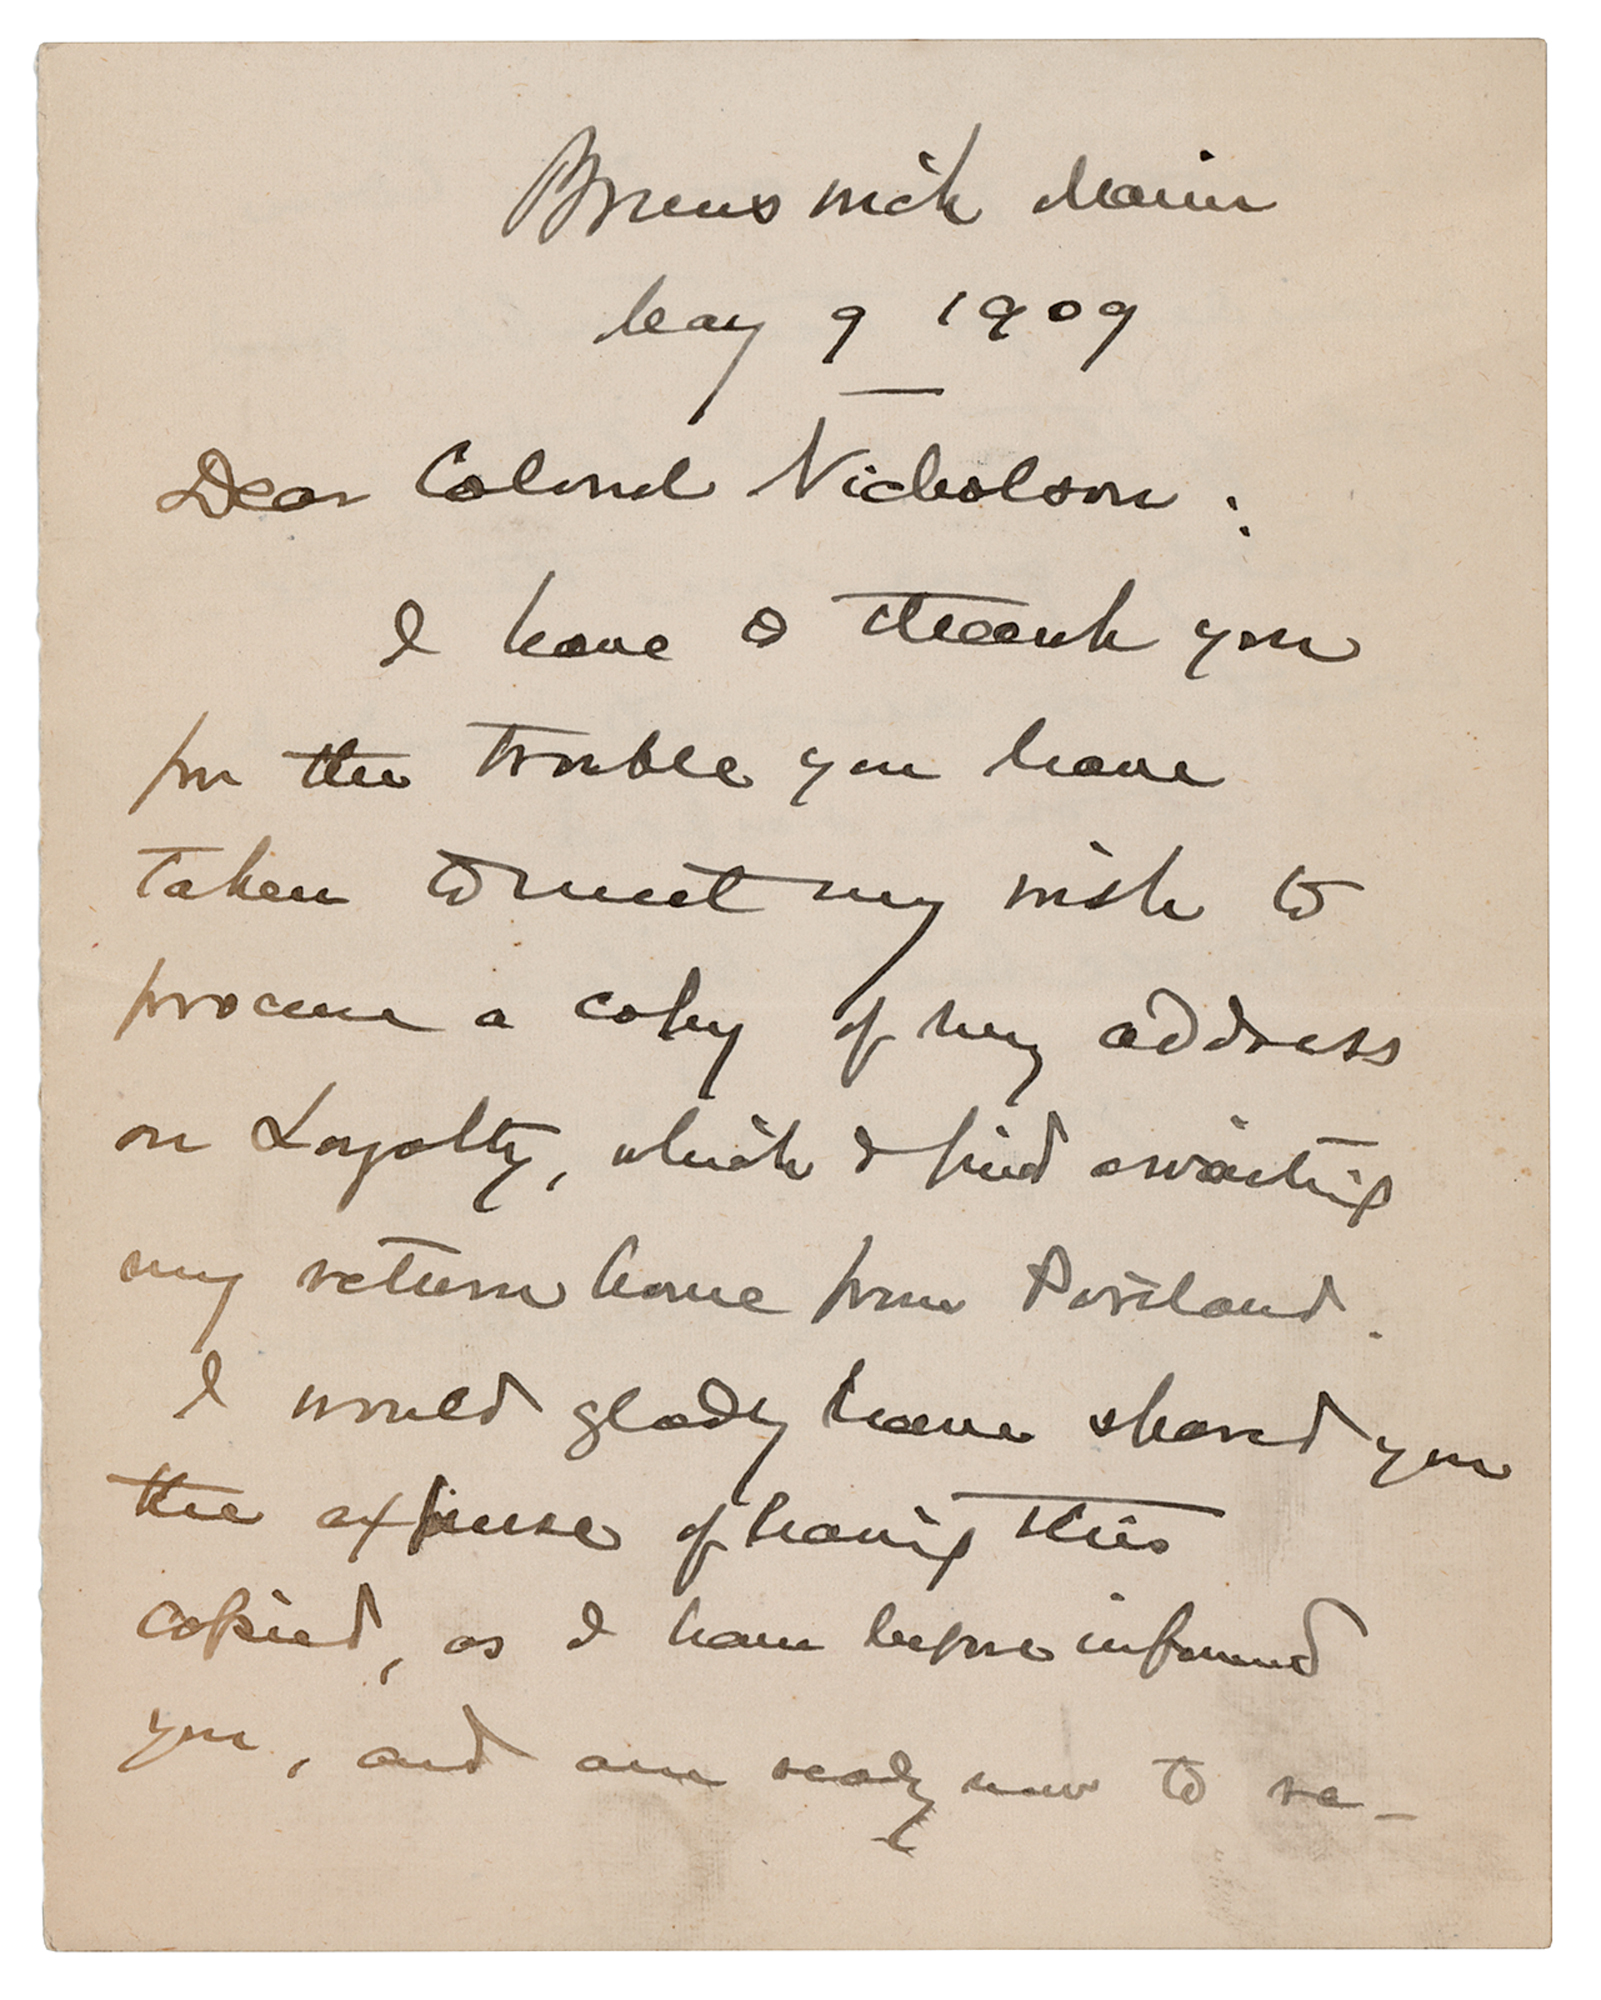 Brunswick Maine
May 9 1909
Dear Colonel Nicholson:
I have to thank you
for the trouble you have
taken to meet my wish to
procure a copy of my address
on Loyalty, which I find awaiting
my return home from Portland.
I would gladly have shared you
the expense of having this
copied, as I have before informed
you, and am ready now to re-